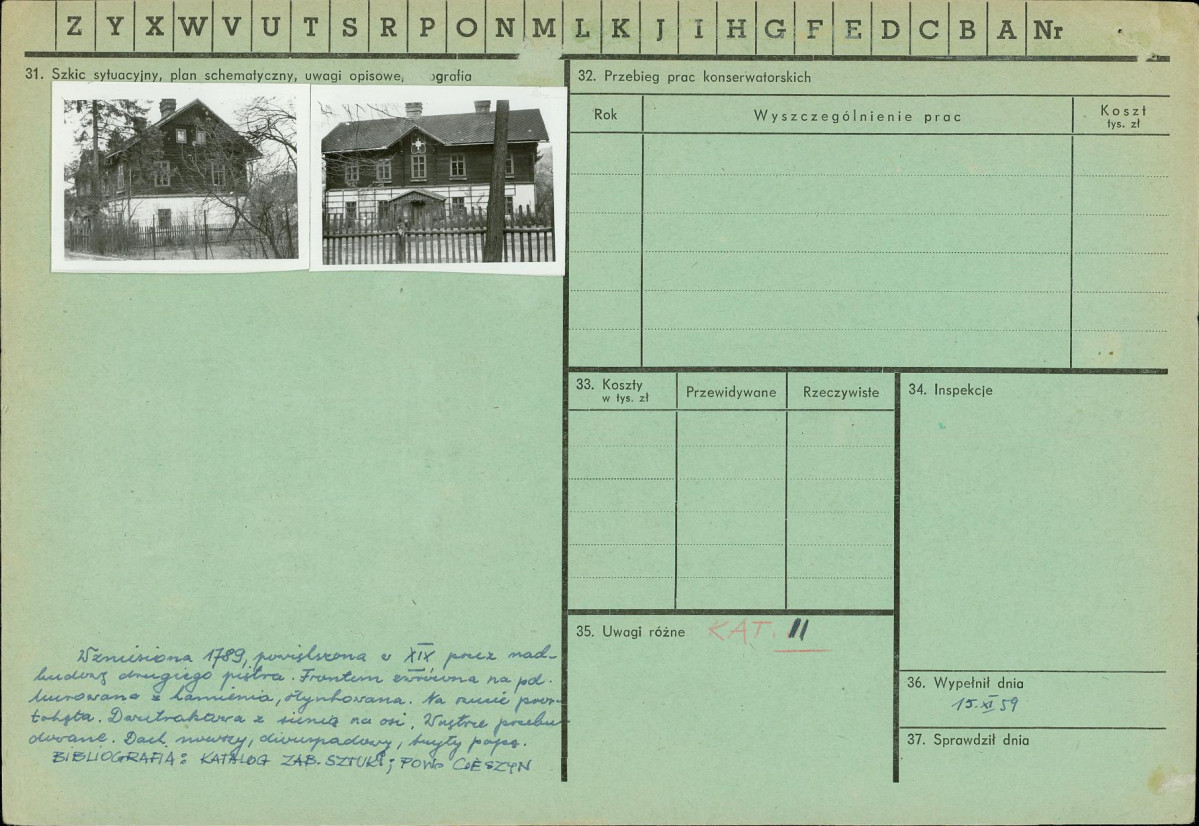 Z Y X W V U T S R P O N M L K J I H G F E D C B A Nr
31. Szkic sytuacyjny, plan schematyczny, uwagi opisowe, ografia
32. Przebieg prac konserwatorskich
Rok
Wyszczególnienie prac
Koszt
tys. zł
33. Koszty
w tys. zł
Przewidywane
Rzeczywiste
34. Inspekcje
35. Uwagi różne KAT. II
36. Wypełnił dnia
15.XI 59
37. Sprawdził dnia
Wzniesiona 1789, powiększona w XIX przez nad-
budowę drugiego piętra. Frontem zwrócona na pd.
Murowana z kamienia, otynkowana. Na rzucie pros-
tokąta. Dwutraktowa z sienią na osi. Wnętrze przebu-
dowane. Dach nowszy, dwuspadowy, kryty papą.
BIBLIOGRAFIA: KATALOG ZAB. SZTUKI; POW. CIESZYN